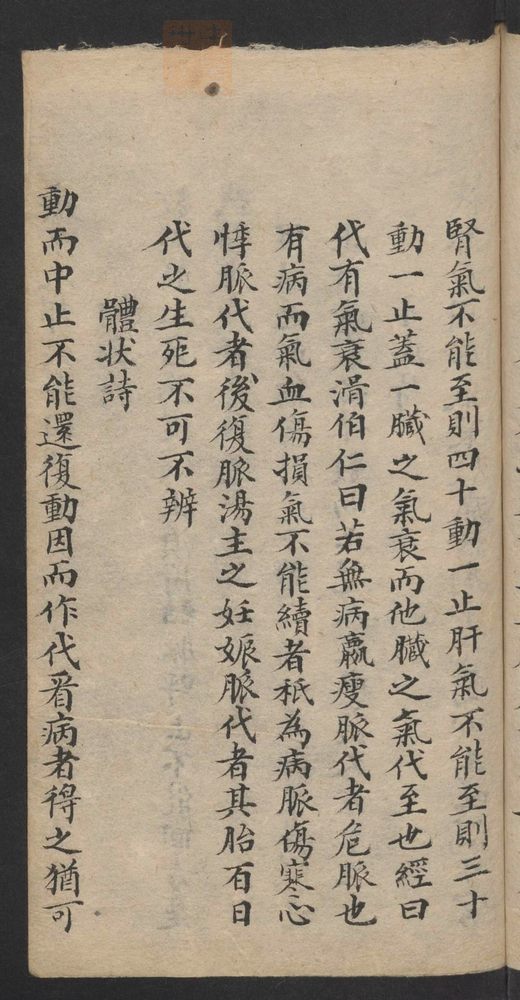 腎氣不能至則四十動一止肝氣不能至則三十
動一止蓋一臟之氣衰而他臟之氣代至也經曰
代有氣衰滑伯仁曰若無病羸瘦脈代者危脈也
有病而氣血傷損氣不能續者秖為病脈傷寒心
悸脈代者後復脈湯主之妊娠脈代者其胎百日
代之生死不可不辨
體状詩
動而中止不能還復動因而作代看病者得之猶可